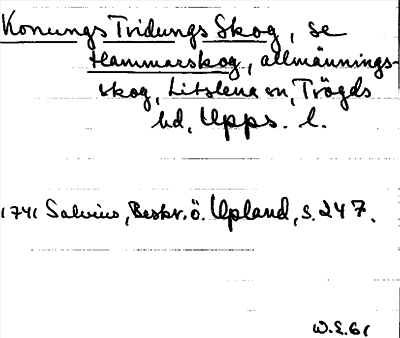 Konungs Tridungs Skog, se
Hammarskog, allmännings-
skog, Litslena sn, Trögds
hd, Upps. l.
1741 Salvius, Beskr. ö. Upland, s. 247.
W.S.61